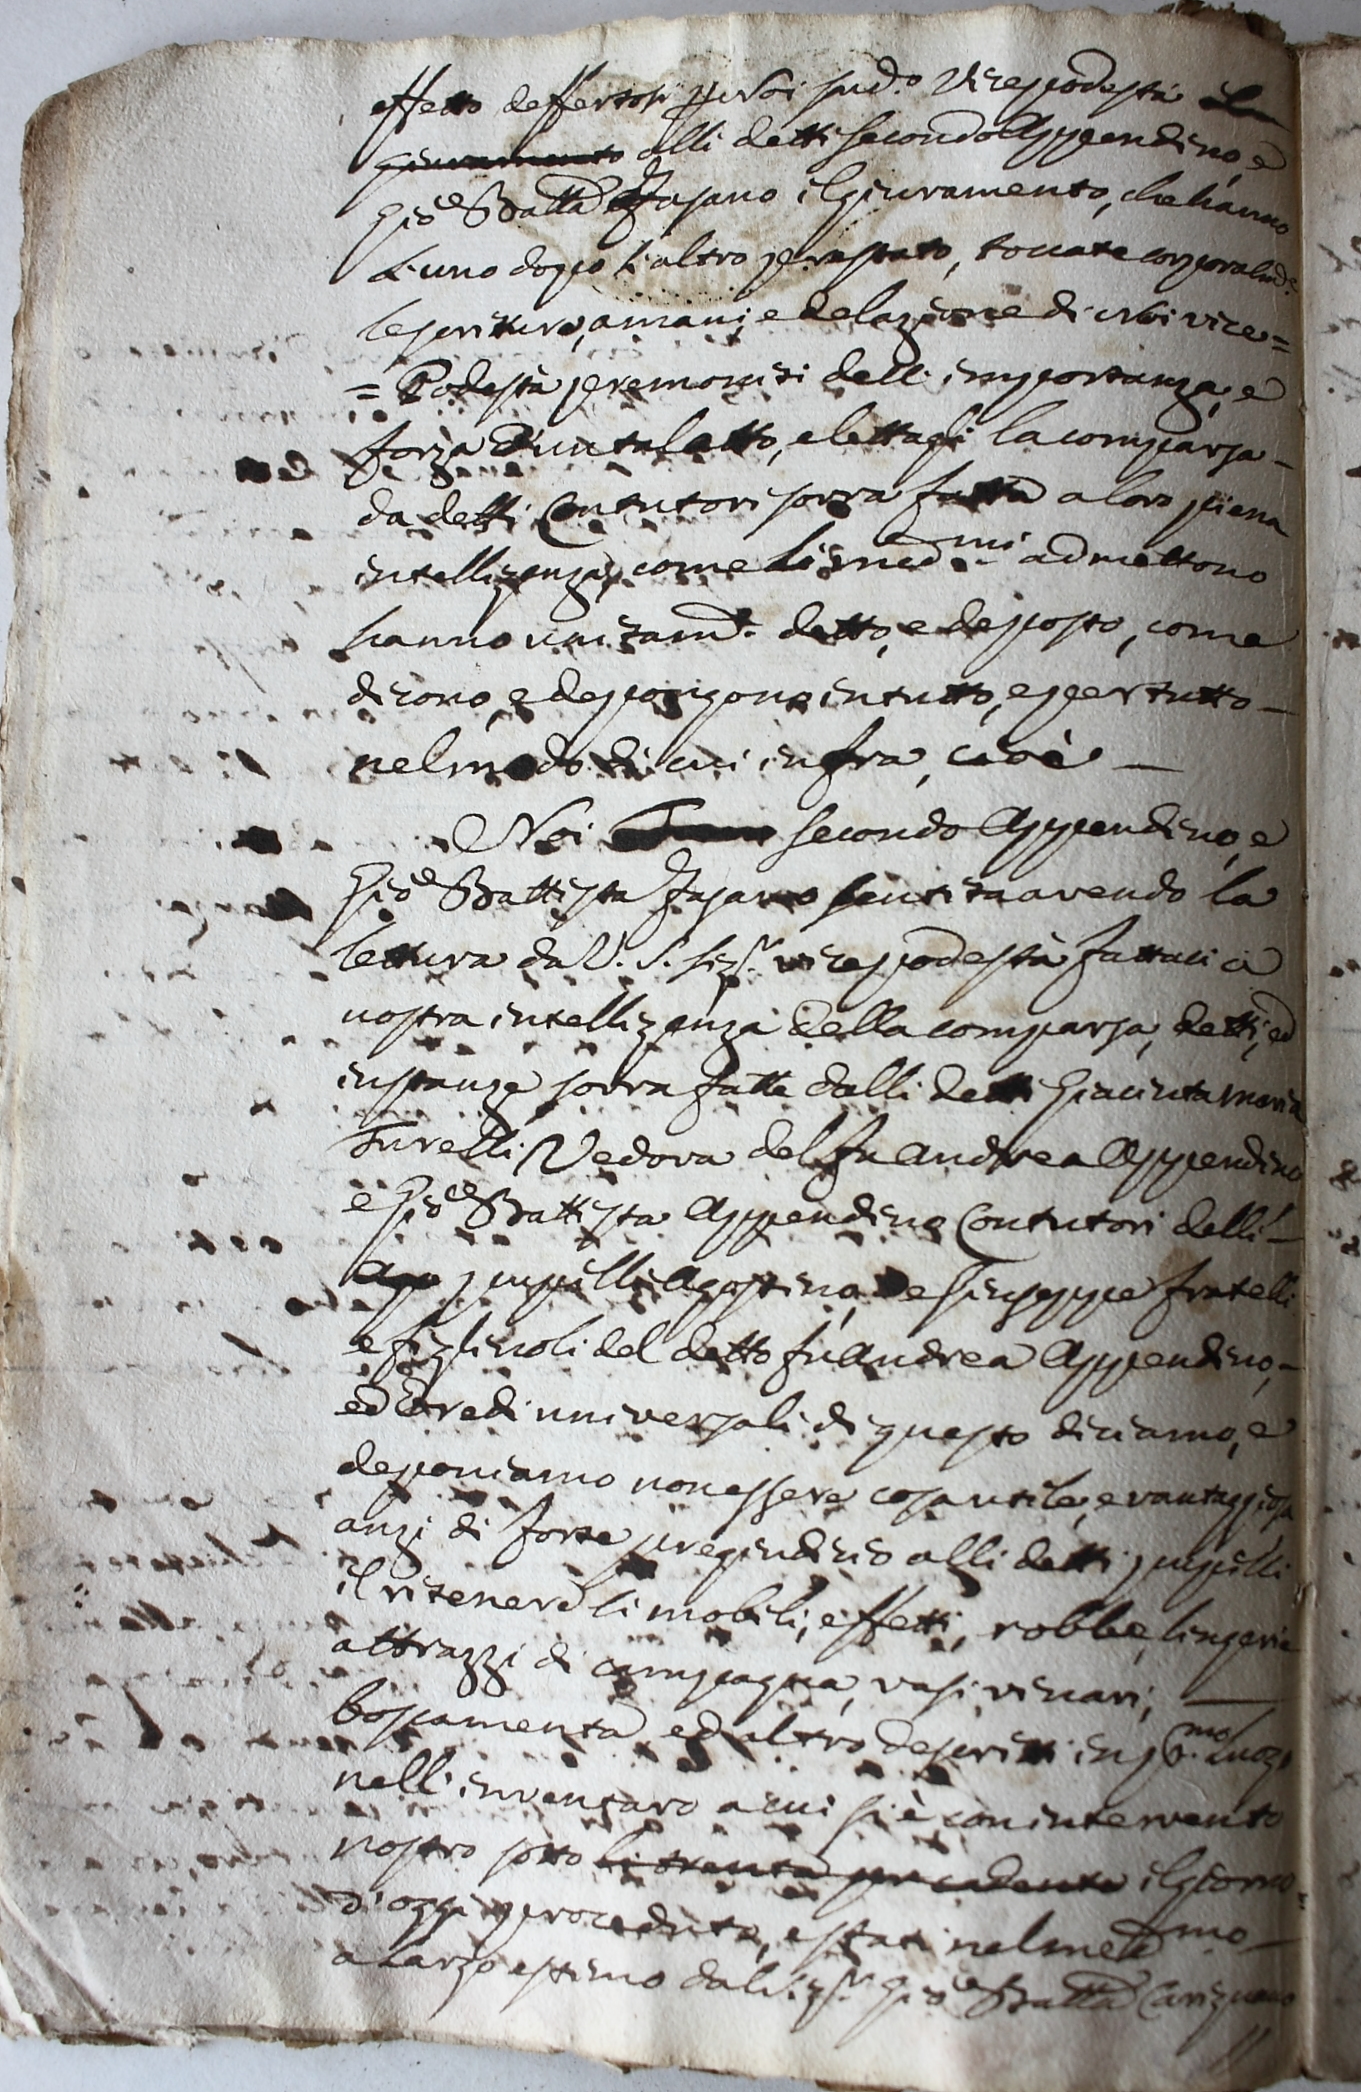 effetto deffertosi per Noi sud.o Vicepodestà
giuramento alli detti secondo Appendino, e
Gioe Batta Fasano il giuramento, che hanno
L'uno doppo l'altro prestato, toccate corporalmte
le scritture, a mani, e delazione di Noi vice=
=Podestà premoniti dell'importanza, e
forza d'un tal atto, e lettagli la comparsa
da detti Contutori sovra fatta a loro piena
intelligenza, come li med.mi admettono
hanno unitam.te detto, e deposto, come
dicono, e depongono in tutto, e per tutto
nel modo di cui infra, cioè
Noi secondo Appendino, e
Gioe Battista Fasano sentita avendo la
lettura da V. S. Sig.r vicepodestà fattaci a
nostra intelligenza della comparsa, detti, ed
instanze sovra fatte dalli detti Giacinta Maria
Turelli Vedova del fu Andrea Appendino
e Gioe Battista Appendino Contutori delli
Ago pupilli Agostino, e Giuseppe fratelli
e figliuoli del detto fu Andrea Appendino,
ed Eredi universali di questo diciamo, e
deponiamo non essere cosa utile, e vantaggiosa
anzi di forte pregiudicio alli detti pupilli
il ritenere li mobili, effetti, robbe, lingerie
attrazzi di campagna, vasi vinari,
boscamenta, ed altro descritti in p.mo luogo
nell'inventaro a cui si è con intervento
nostro sotto li trenta precadente il giorno
d'oggi proceduto, e stati nel med.mo
a Largo estimo dal Sig.r Gioe Batta Carignano